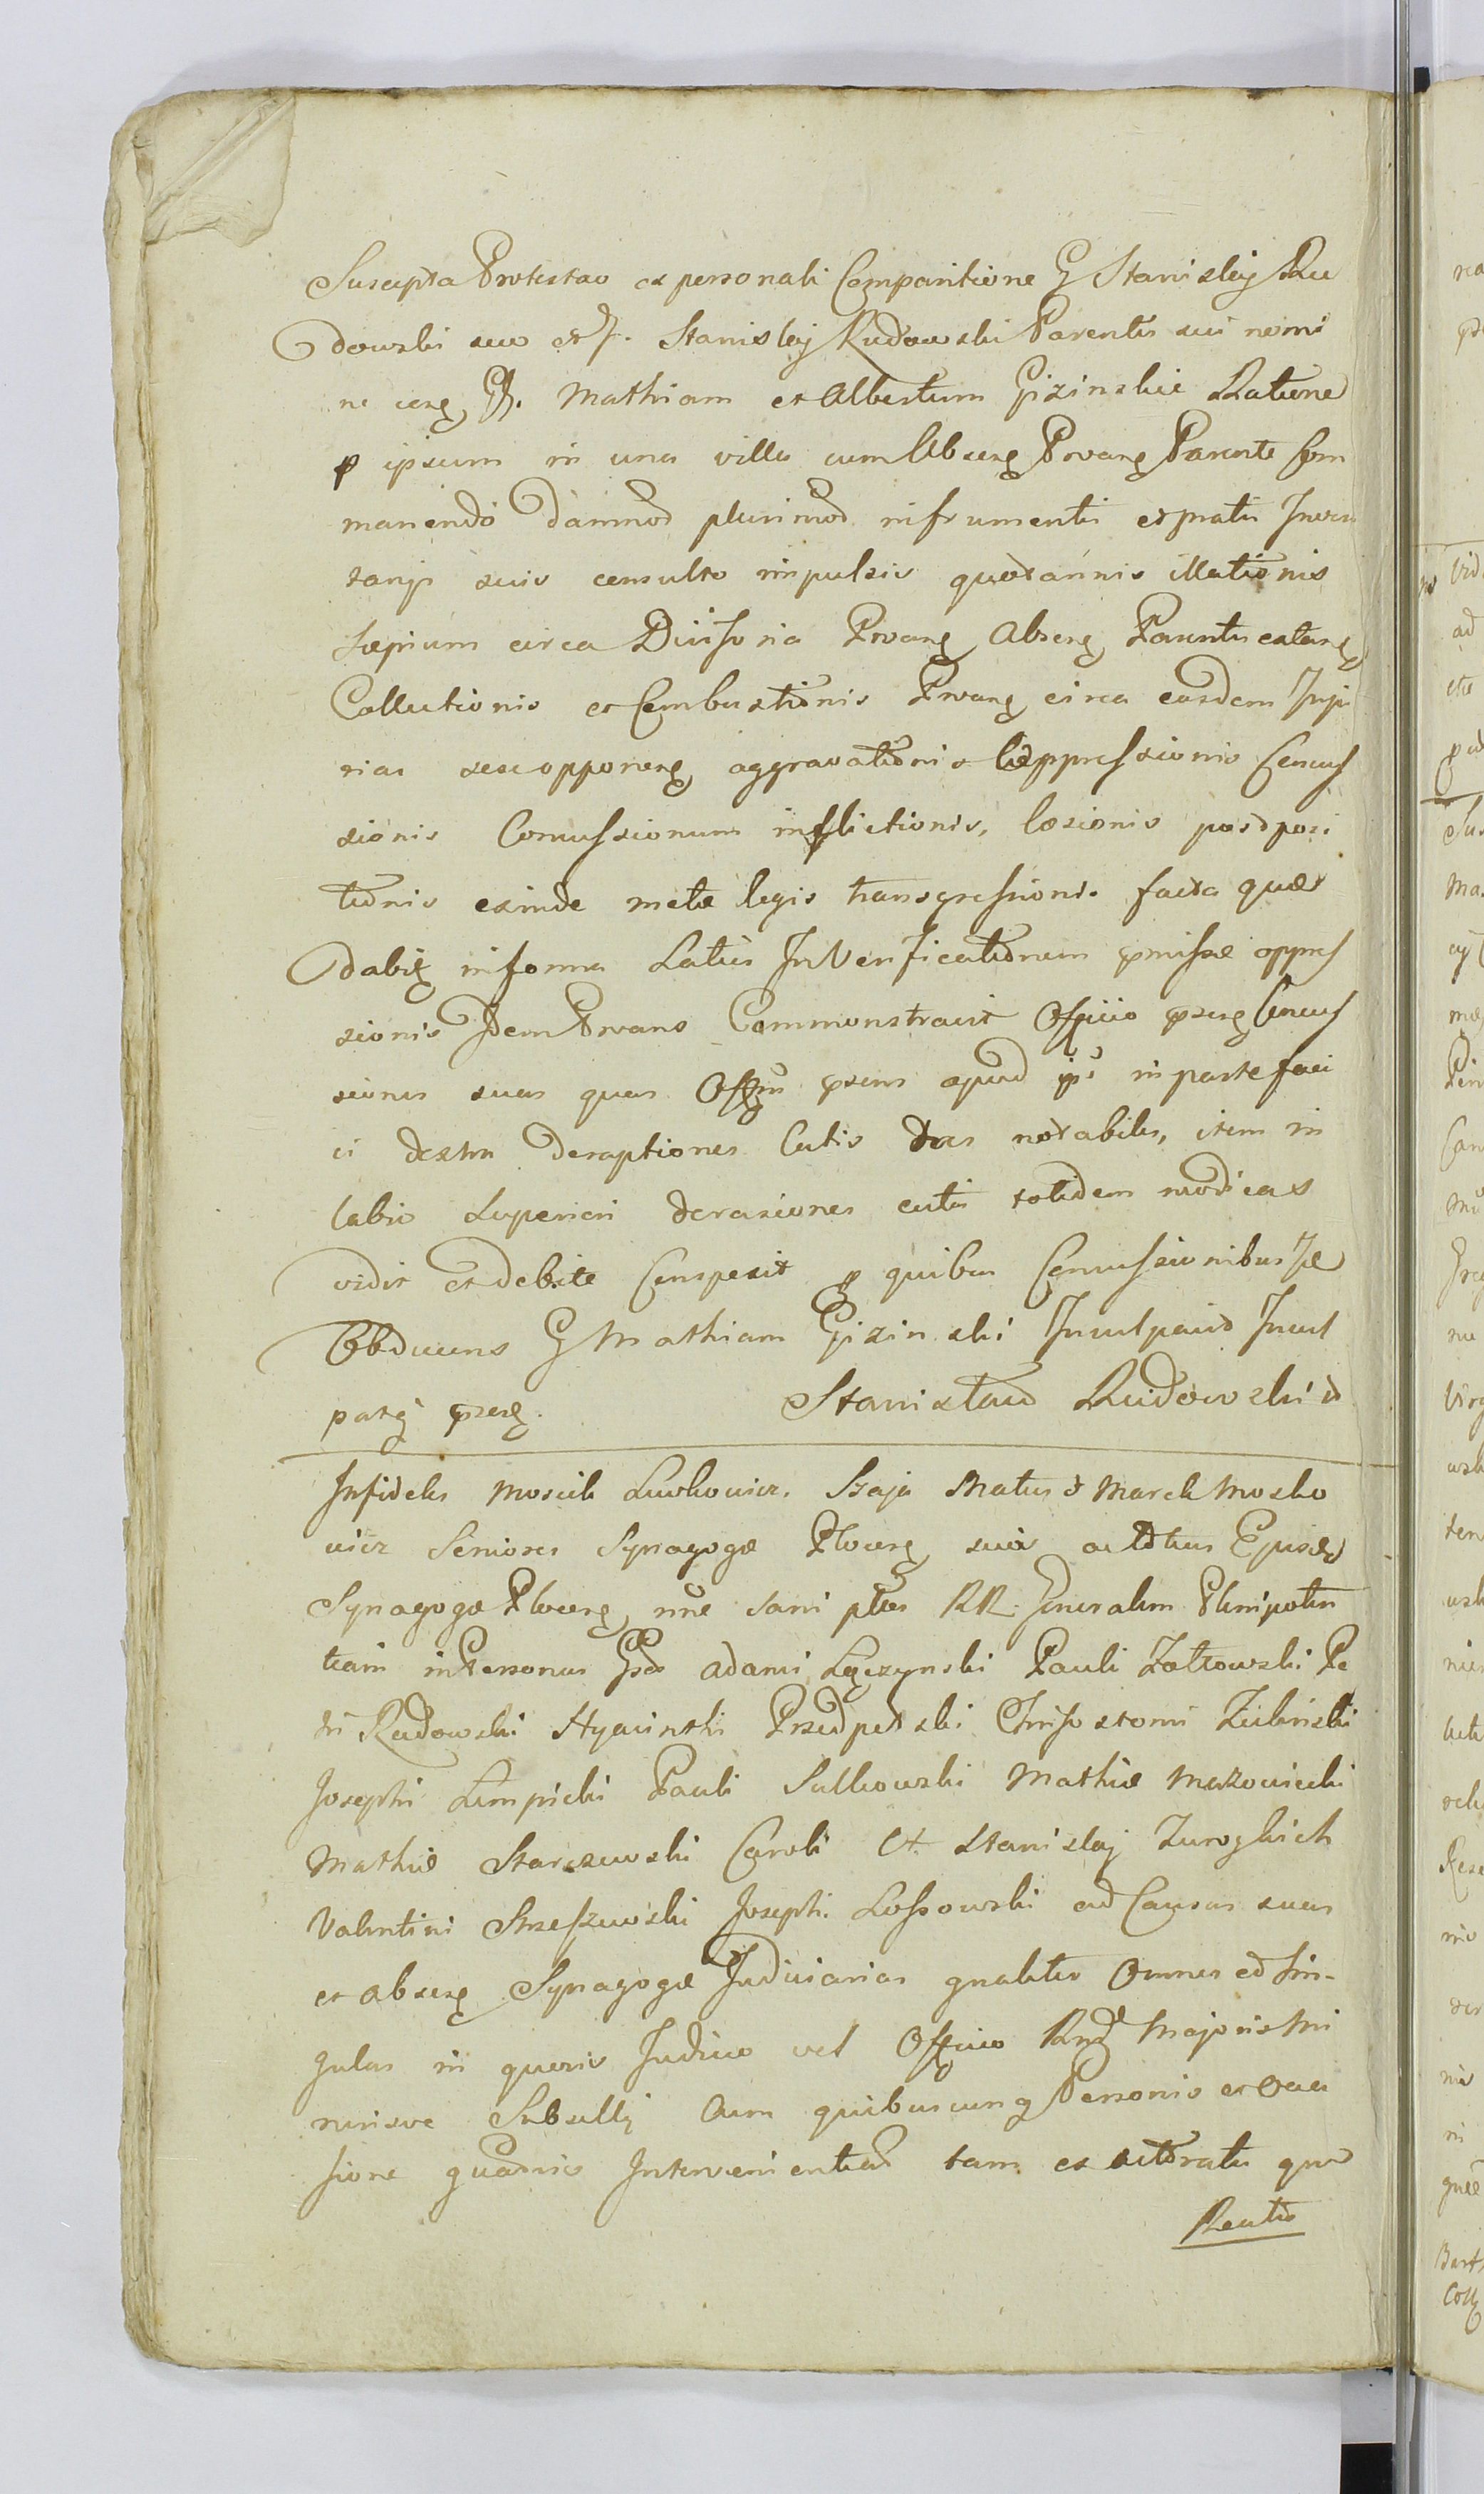 Suscepta Protestao ex personali Comparitione G Stanislaj Ru
dowski suo et G. Stanislaj Rudowski Parentis sui nomi
ne cerg GG. Mathiam et Albertum Gizinskie Ratione
p ipsum in una villa cum Absene Provang Parente Com
manendo damnod plurimod in frumentis et pratis Inven
tarys suis consulto impulsis quotannis illationis
sepium circa Divisoria Provang Abseng Parentis extang
Collectionis et Combustionis Provang circa easdem Inju
rias sese opponeng aggravationis oppressionis Concus
sionis Comussionum inflictionis, læsionis postposi
tionis exinde metæ legis transgressionis facta quæ
dabig in forma Latius In Verificationem pmissæ oppres
sionis Idem Provans Commonstravit Officio pseng Concus
siones suas quas Offm psens apud ips in parte faci
ei dextra deraptiones Cutis tres notabiles, item in
labio superiori derasiones cutis totidem modicas
vidit et debite Conspexit p quibus Concussionibus Je
Obducens G Mathiam Gizinski Inculpavit Incul
patg pseng. Stanisław Rudowski
Infideles Mosiek Lewkowicz, Szaja Matus & Marek Moszko
wicz Seniores Synagogæ Ploceng suis ac totius
Synagogæ Ploceng nne dani ptes RR. Generalem Plenipoten
tiam in Personas Adami Łączynski Pauli Zołtowski Pe
tri Rudowski Hyacinthi Przedpełski Chrisostomi Zielinski
Josephi Lempicki Pauli Sulkowski Mathiæ Mazowiecki
Mathiæ Starczewski Caroli et Stanislaj
Valentini Strzeszewski Josephi Lossowski ad Causas suas
et abseng Synagogæ Judiciarias gnaliter Omnes et sin-
gulas in quovis Judicio vel Officio Rnd Majoris Mi
norisve Subsellij Cum quibuscung Personis et occa
sione quavis Intervenientiad tam ex actoratu qua
Reatu